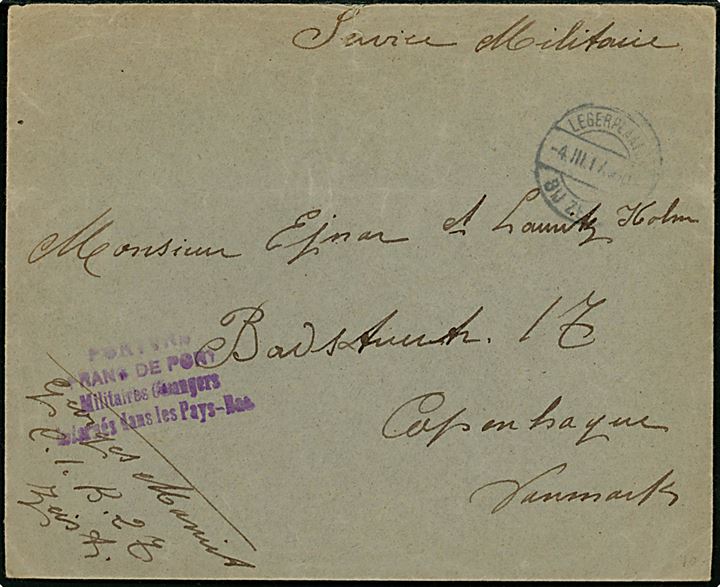 Service Militaire
LEGERPLAATS
-4.III.17
BIJ Z
Monsieur Ejnar et Lauritz Holm
Badstuestr. 17
Copenhague
Danmark
PORTVRIJ
FRANC DE PORT
Militaires étrangers
internés dans les Pays-Bas
Georges
C. I. B. 27
Zeist